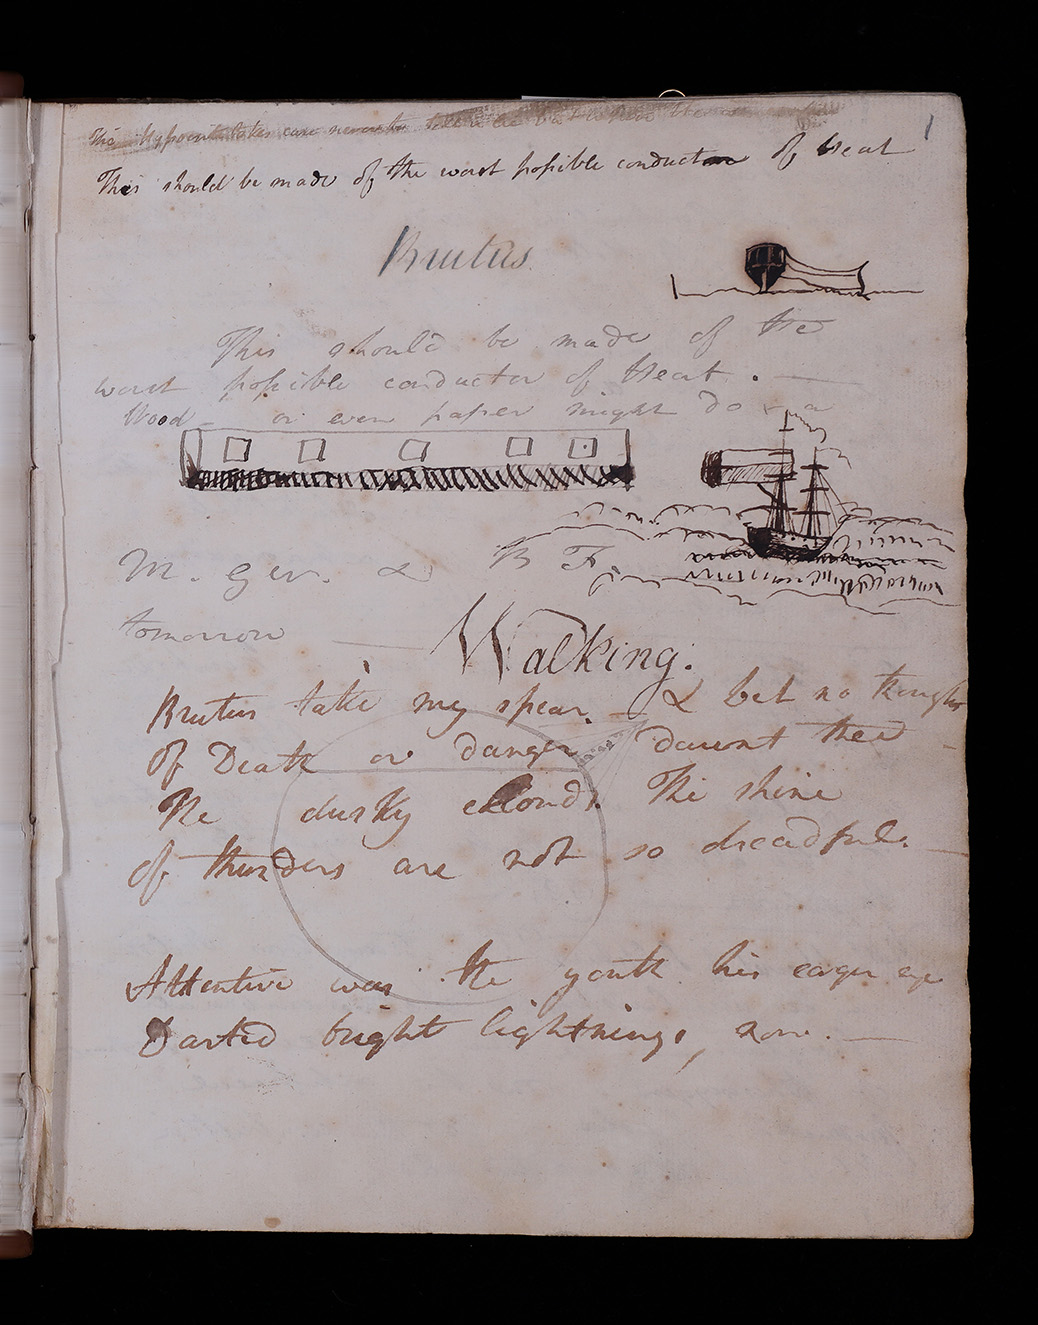 1
This
This should be made of the worst possible conductor of Heat
Brutus
This should be made of the
worst possible conductor of Heat. —
Wood — or even paper might do
M. B F.
tomorrow —
Walking.
Brutus take my spear. — & let no thought
Of Death or danger daunt thee —
The dusky cloud. The shine
of thunders are not so dreadful. —
Attentive was the youth his eager eye
Darted bright lightnings, now. —